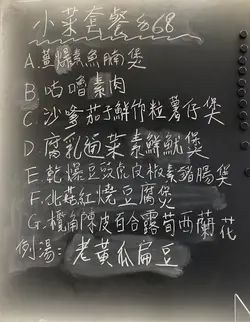 小菜套餐 $68
A.薑爆素魚腩煲
B.咕嚕素肉
C.沙爹茄子鮮竹粒薯仔煲
D.腐乳通菜素鮮魷煲
E.乾爆豆豉虎皮椒素豬腸煲
F.北菇紅燒豆腐煲
G.欖角陳皮百合露筍西蘭花
例湯：老黃瓜扁豆